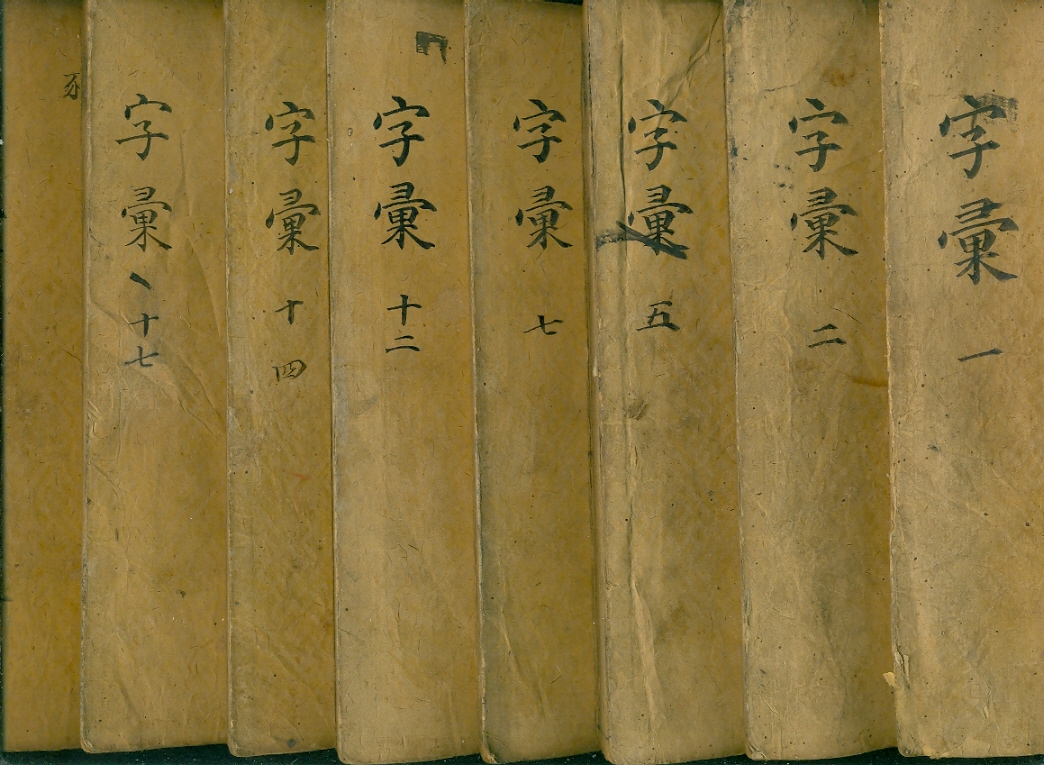 字彙 一
字彙 二
字彙 五
字彙 七
字彙 十二
字彙 十四
字彙 十七